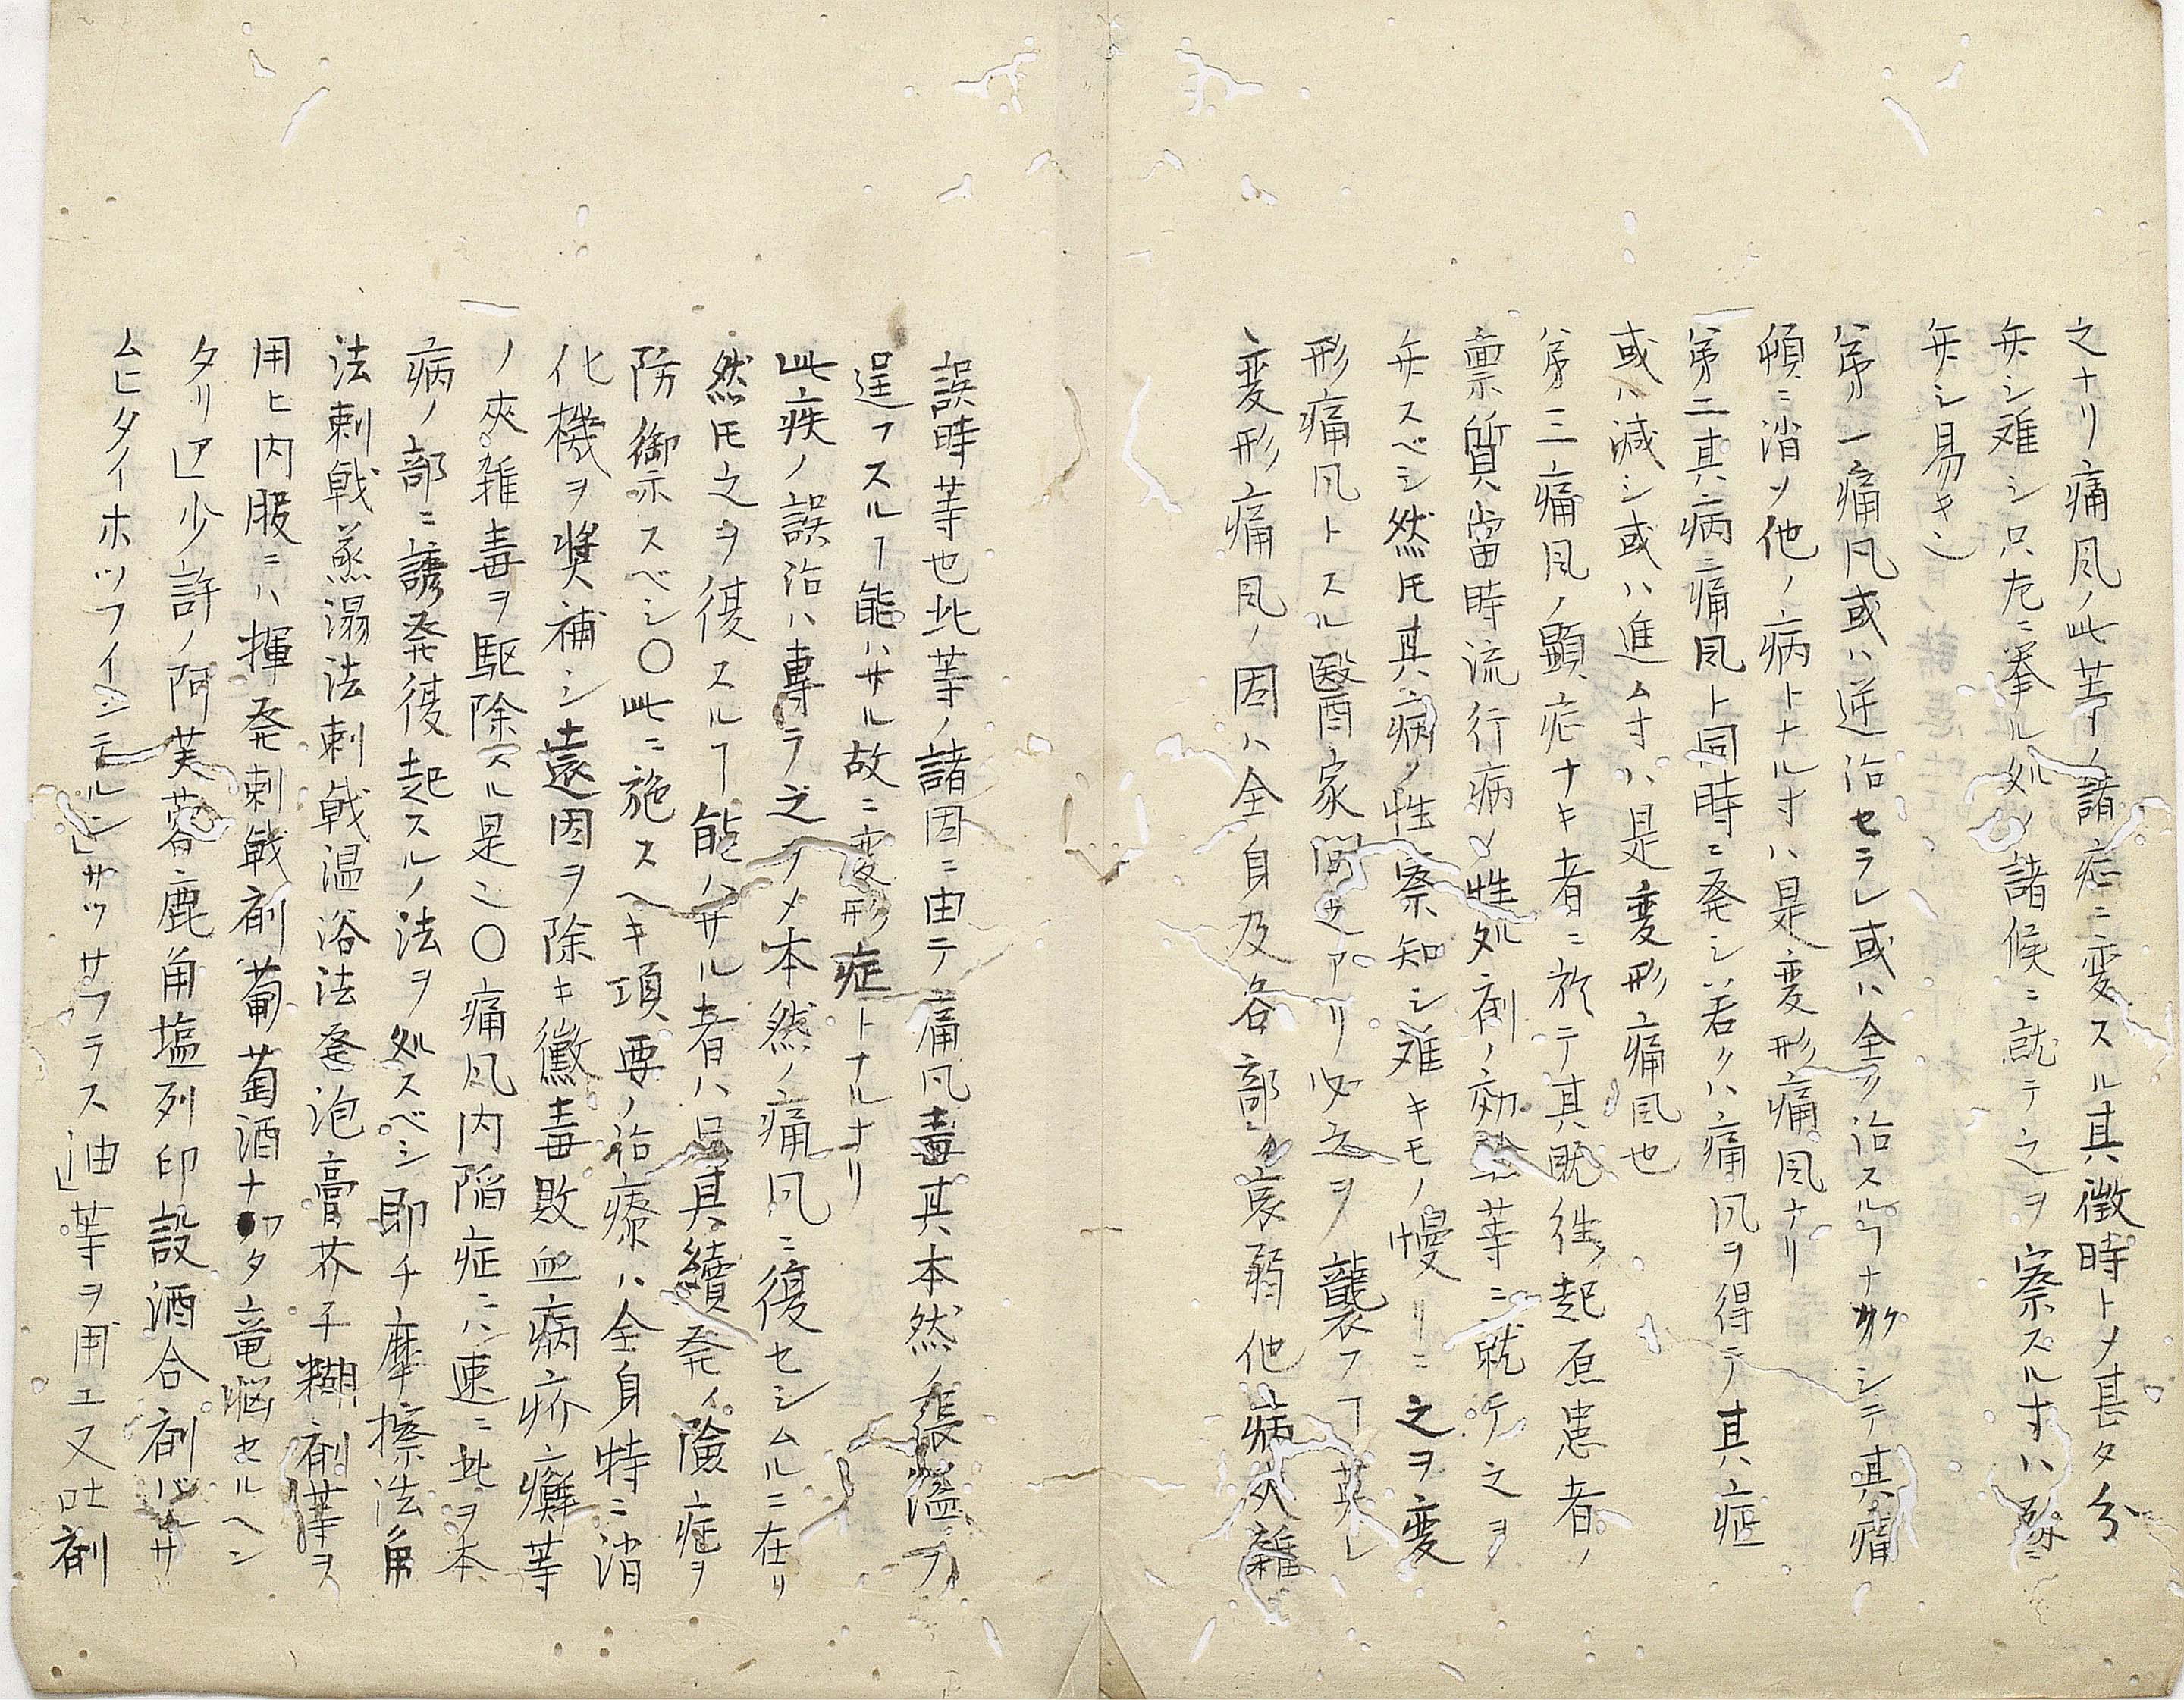 之ナリ痛風ノ此等ノ諸症ニ変スル其徴時トメ甚タ分
弁シ难シ只左ニ挙ル処ノ諸候ニ就テ之ヲ察スルオハ
弁シ易キ
第一痛風或ハ逆治セラレ或ハ全ク治スルヿナクシテ其痛
頓ニ消ソ他ノ病トナルオハ是変形痛風ナリ
第二其病ニ痛風ト同時ニ発シ若クハ痛風ヲ得テ其症
或ハ减シ或ハ進ムオハ是変形痛風也
第三痛風ノ顕症ナキ者ニ於テ其既徃ノ起原患者ノ
禀質當時流行病ノ性処剤ノ効 等ニ就テ之ヲ
弁スベシ然𪜈其病ノ性察知シ难キモノ慢リニ之ヲ変
形痛風トスル醫家間之アリ必之ヲ襲フヿ莫レ
変形痛風ノ因ハ全身及各部ノ衰弱他病夾雜
誤時等也此等ノ諸因ニ由テ痛風毒其本然ノ張溢ヲ
逞フスルヿ能ハサル故ニ変形症トナルナリ
此疾ノ誤治ハ專ラ之ヲメ本然ノ痛風ニ復セシムルニ在リ
然𪜈之ヲ復スルヿ能ハサル者ハ只其續発ノ險症ヲ
防御示スベシ〇此ニ施スヘキ項要ノ治療ハ全身特ニ消
化機ヲ奨補シ遠因ヲ除キ黴毒敗血病疥癬等
ノ夾雑毒ヲ駆除スル是ニ〇痛風内陥症ニハ速ニ此ヲ本
病ノ部ニ誘発復起スルノ法ヲ処スベシ即チ摩擦法角
法刺戟蒸溻法刺戟温浴法発泡膏芥子糊剤等ヲ
用ヒ内服ニハ揮発刺戟剤葡萄酒ナフタ竜脳セルヘン
タリア」少許ノ阿芙蓉鹿角塩列印設酒合剤
ムヒタイホツフイシテルン」サツサフラス油」等ヲ用ユ又吐剤